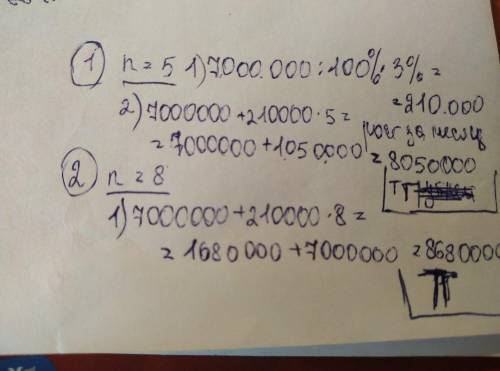 ① n = 5 1) 7.000.000 : 100% · 3% =
= 210.000
2) 7000000 + 210000 · 5 =
за месяц
= 7000000 + 1050000 = 8050000
② n = 8
1) 7000000 + 210000 · 8 =
= 1680000 + 7000000 = 8680000